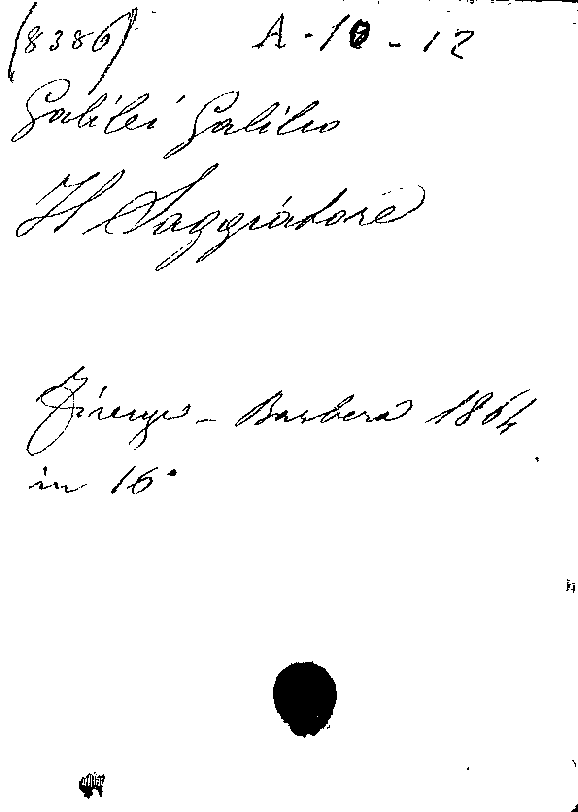 (8386) A-10-12
Galilei Galileo
Il Saggiatore
Firenze - Barbera 1864
in 16°